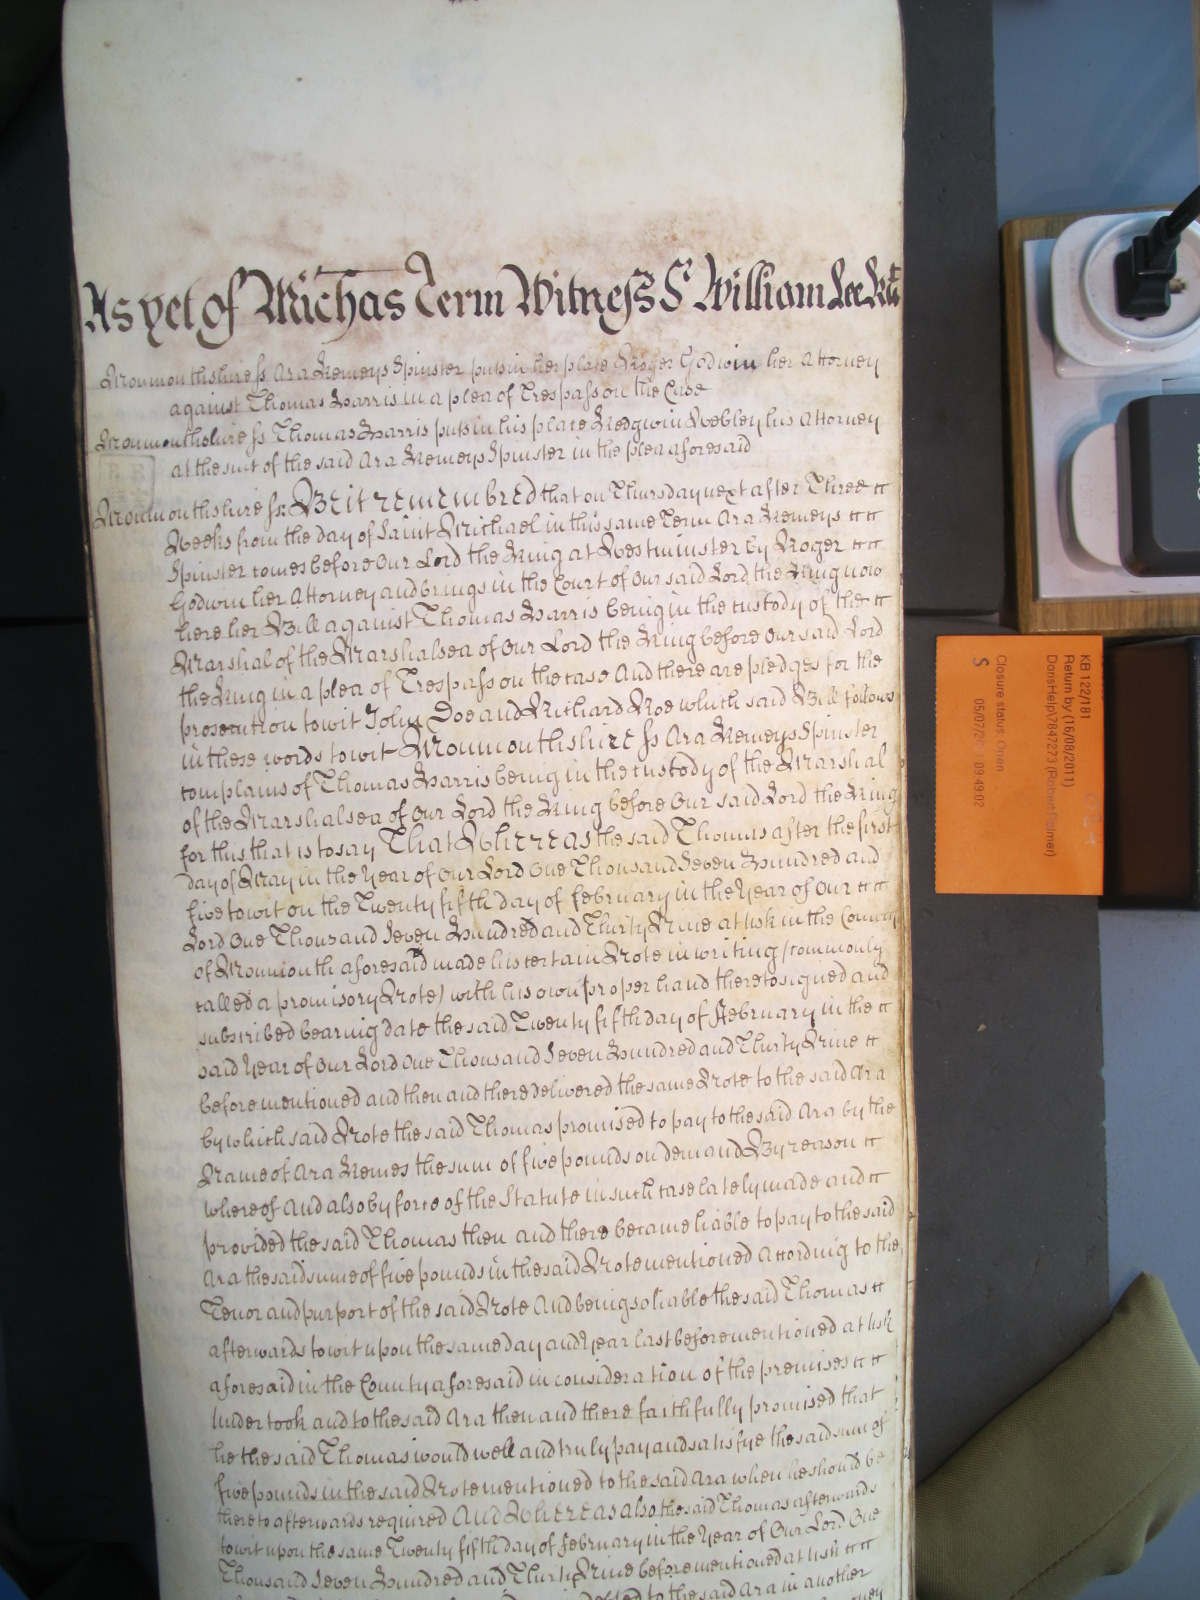 As yet of Michas Term Witness Sr William Lee Kt
Monmouthshire ss Ara Kemeys Spinster puts in her place Roger Godwin her Attorney
against Thomas Harris in a plea of Trespass on the Case
Monmouthshire ss Thomas Harris puts in his place Redgwin Webley his Attorney
at the suit of the said Ara Kemeys Spinster in the plea aforesaid
Monmouthshire ss: Be it remembred that on Thursday next after Three
Weeks from the day of Saint Michael in this same Term Ara Kemeys
Spinster comes before Our Lord the King at Westminster by Roger
Godwin her Attorney and brings in the Court of Our said Lord the King now
here her Bill against Thomas Harris being in the custody of the
Marshal of the Marshalsea of Our Lord the King before Our said Lord
the King in a plea of Trespass on the case And there are pledges for the
prosecution to wit John Doe and Richard Roe which said Bill follows
in these words to wit Monmouthshire ss Ara Kemeys Spinster
complains of Thomas Harris being in the custody of the Marshal
of the Marshalsea of Our Lord the King before Our said Lord the King
for this that is to say That Whereas the said Thomas after the first
day of May in the Year of Our Lord One Thousand Seven Hundred and
five to wit on the Twenty fifth day of February in the Year of Our
Lord One Thousand Seven Hundred and Thirty Nine at Usk in the County
of Monmouth aforesaid made his certain Note in writing (commonly
called a promisory Note) with his own proper hand thereto signed and
subscribed bearing date the said Twenty fifth day of February in the
said Year of Our Lord One Thousand Seven Hundred and Thirty Nine
before mentioned and then and there delivered the same Note to the said Ara
by which said Note the said Thomas promised to pay to the said Ara by the
Name of Ara Kemes the sum of five pounds on demand By reason
whereof and also by force of the Statute in such case lately made and
provided the said Thomas then and there became liable to pay to the said
Ara the said sume of five pounds in the said Note mentioned According to the
Tenor and purport of the said Note And being so liable the said Thomas
afterwards to wit upon the same day and Year last before mentioned at Usk
aforesaid in the County aforesaid in consideration of the premises
Undertook and to the said Ara then and there faithfully promised that
he the said Thomas would well and truly pay and satisfye the said sum of
five pounds in the said Note mentioned to the said Ara when he should be
thereto afterwards required And Whereas also the said Thomas afterwards
to wit upon the same Twenty fifth day of February in the Year of Our Lord One
Thousand Seven Hundred and Thirty Nine before mentioned at Usk
to the said Ara in another
KB 122/181
Return by (16/08/2011)
DorisHelp\7847273 (Robert Palmer)
Closure status: Open
S 05/07/20 09:49:02